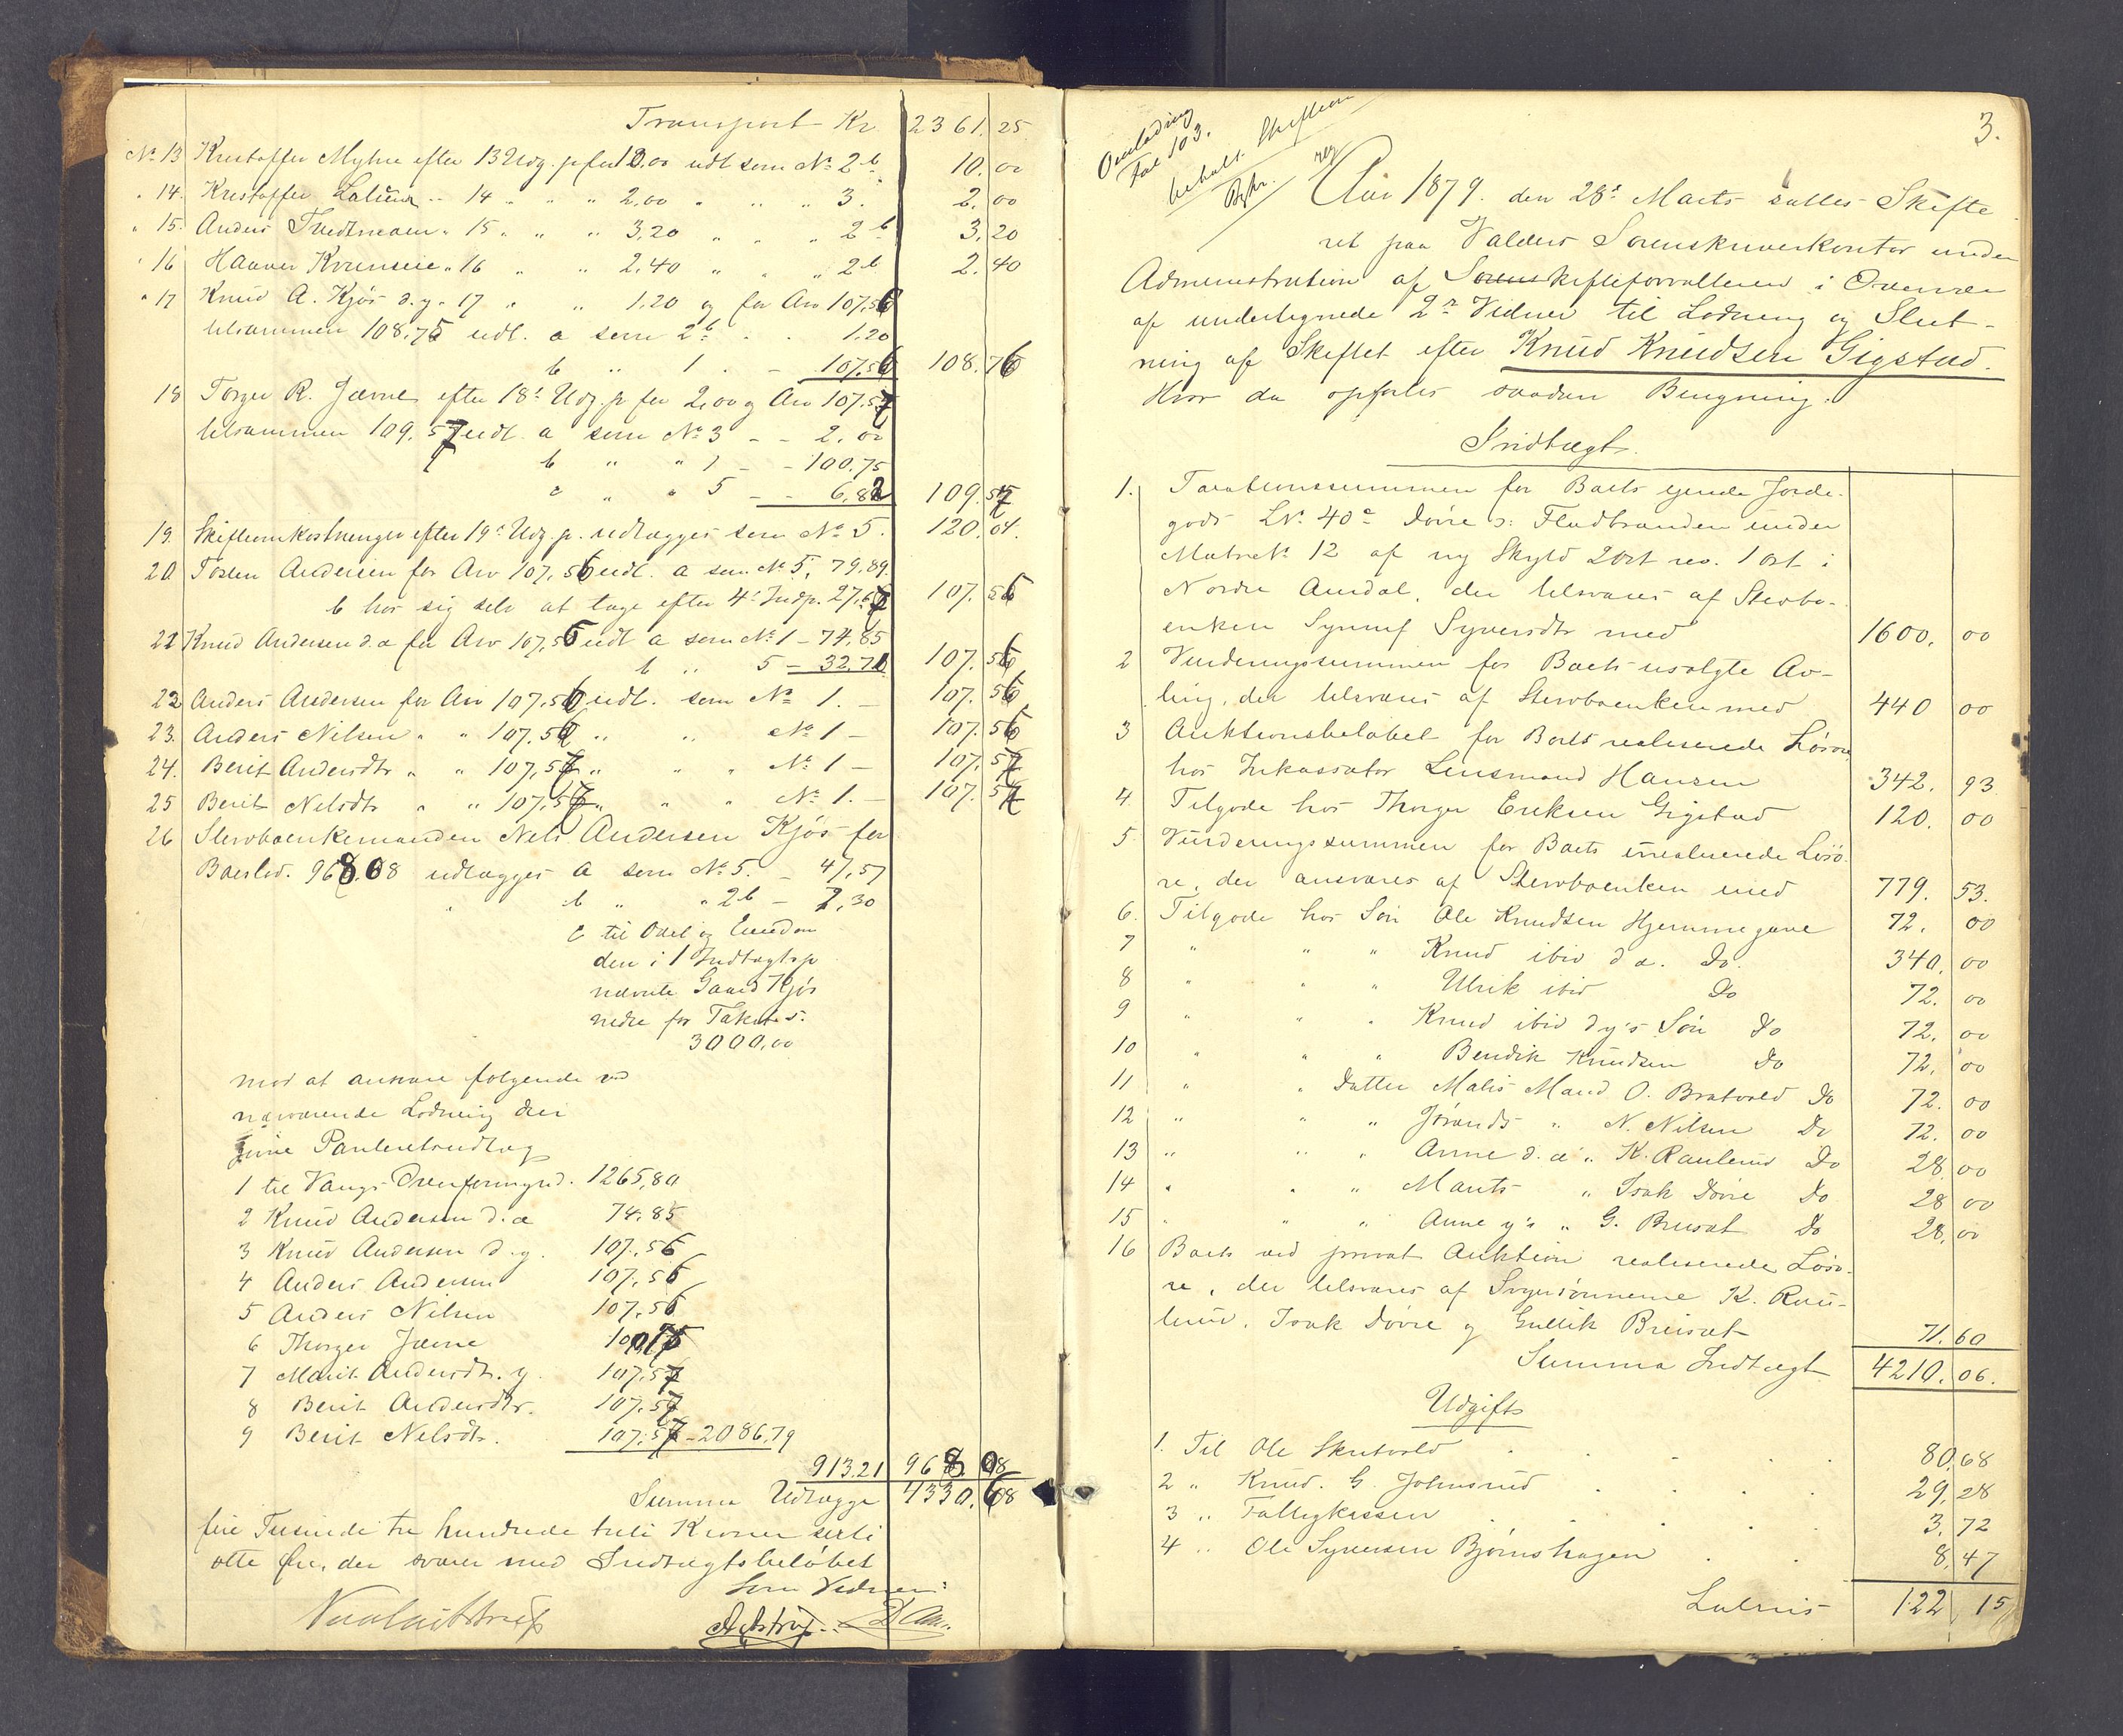 Transport Kr. 2361.25
No 13 Kristoffer Myhre efter 13 Udg. p for 10.00 udl som No 2b 10.00
" 14. Kristoffer " 14 " " " 2.00 " " " 3. 2.00
" 15. Anders " 15 " " " 3.20 " " " 2b 3.20
" 16 " 16 " " 2.40 " " " 2b 2.40
" 17 Knud A. Kjøs d.y. " 17 " " 1.20 og for Arv 107.56
tilsammen 108.76 udl. a som 2b . . 1.20
b " 1 . - 107.56 108.76
18 Torger R. Jævne efter 18d Udg. p for 2,00 og Arv 107.57
tilsammen 109.57 udl. a som No 3 - - 2.00
b " " 1 - - 100.75
c " " 5 - - 6.82 109.57
19. Skifteomkostninger efter 19d Udg. p. udlægges som No 5. 120.04.
20 Andersen for Arv 107.56 udl. a som No 5, 79.89.
b hos sig selv at tage efter 4d Indp. 27.67 107.56
21 Knud Andersen d.æ for Arv 107.56 udl a som No 1 - 74.85
b " 5 - 32.71 107.56
22 Anders Andersen for Arv 107.56 udl. som No 1. - 107.56
23. Anders Nilsen " " 107.56 " " No 1 - 107.56
24. Berit Andersdtr " " 107.57 " " " No 1 - 107.57
25 Berit Nelsdtr " " 107.57 " " " No 1. - 107.57
26 Stervboenkemanden Nels Andersen Kjøs for
Boeslod. 968.08 udlægges a som No 5. - 47,57
" b " " 2b - 7,30
c til Odel og Eiendom
den i 1 Indtægtsp
nævnte Gaard Kjøs
nedre for Takst s.
3000,00
mod at ansvare følgende ved
nærværende Lodning der
givne Panteretsudlæg
1 til Vangs Overformynd. 1265,80
2 Knud Andersen d.æ 74.85
3 Knud Andersen d.y. 107.56
4 Anders Andersen 107.56
5 Anders Nilsen 107.56
6 Thorger Jævne 100.75
7 Marit Andersdtr. y. 107.57
8 Berit Andersdtr. 107.57
9 Berit Nelsdtr. 107.57 - 2086.79
913.21 968.08
Summa Udlægge 4330.68
fire Tusinde tre hundrede treti Kroner sexti
otte Øre, der svarer med Indtægtsbeløbet
Som Vidner:
3.
Overlodning
Fol 103.
behold. Skifteom
Aar 1879. den 28d Marts sattes Skifte
ret paa Valders Sorenskriverkontor under
Administration af Sorenskifteforvalteren i Overvær
af undertegnede 2de Vidner til Lodning og Slut-
ning af Skiftet efter Knud Knudsen Gigstad.
Hvor da opførtes saadan Beregning:
Indtægt.
1. Taxationssummen for Boets eiende Jorde-
gods LNo 40a Døvre s: Fladbraaden under
MatrNo 12 af ny Skyld 2 Ort rev. 1 ort i
Nordre Aurdal, der tilsvares af Stervbo-
enken Synnef Syversdtr med 1600. 00
2 Vurderingssummen for Boets usolgte Av-
ling, der tilsvares af Stervboenken med 440 00
3 Auktionsbeløbet for Boets realiserede Løsøre
hos Inkassator Lensmand Hansen 342. 93
4. Tilgode hos Thorger Eriksen Gigstad 120. 00
5 Vurderingssummen for Boets urealiserede Løsø-
re, der ansvares af Stervboenken med 779. 53.
6. Tilgode hos Søn Ole Knudsen Hjemmegave 72. 00
7 " " " Knud ibid d æ. Do. 340. 00
8 " " " Ulrik ibid Do 72. 00
9 " " " Knud ibid d y's Søn Do 72. 00
10 " " " Bendik Knudsen Do 72. 00
11 " " Datter Malis Mand O. Bratvold Do 72. 00
12 " " " Jørands " N. Nilsen Do 72. 00
13 " " " Anne d. æ " K. Raulend Do 28.00
14 " " " Marits " Isak Døvre Do 28 00
15 " " " Anne y's " G. Breisæt Do 28.00
16 Boets ved privat Auktion realiserede Løsø-
re, der tilsvares af Svigersønnerne K. Rau-
lend, Isak Døvre og Gullik Breisæt 71.60
Summa Indtægt 4210.06.
Udgift
1. Til Ole Skutvold . . . . . 80.68
2 " Knud. G. Johnsrud . . . . 29.28
3 " Fattigkassen . . . . . 3.72
4 " Ole Syversen Bjørnshagen . . 8.47
Lateris 122 15